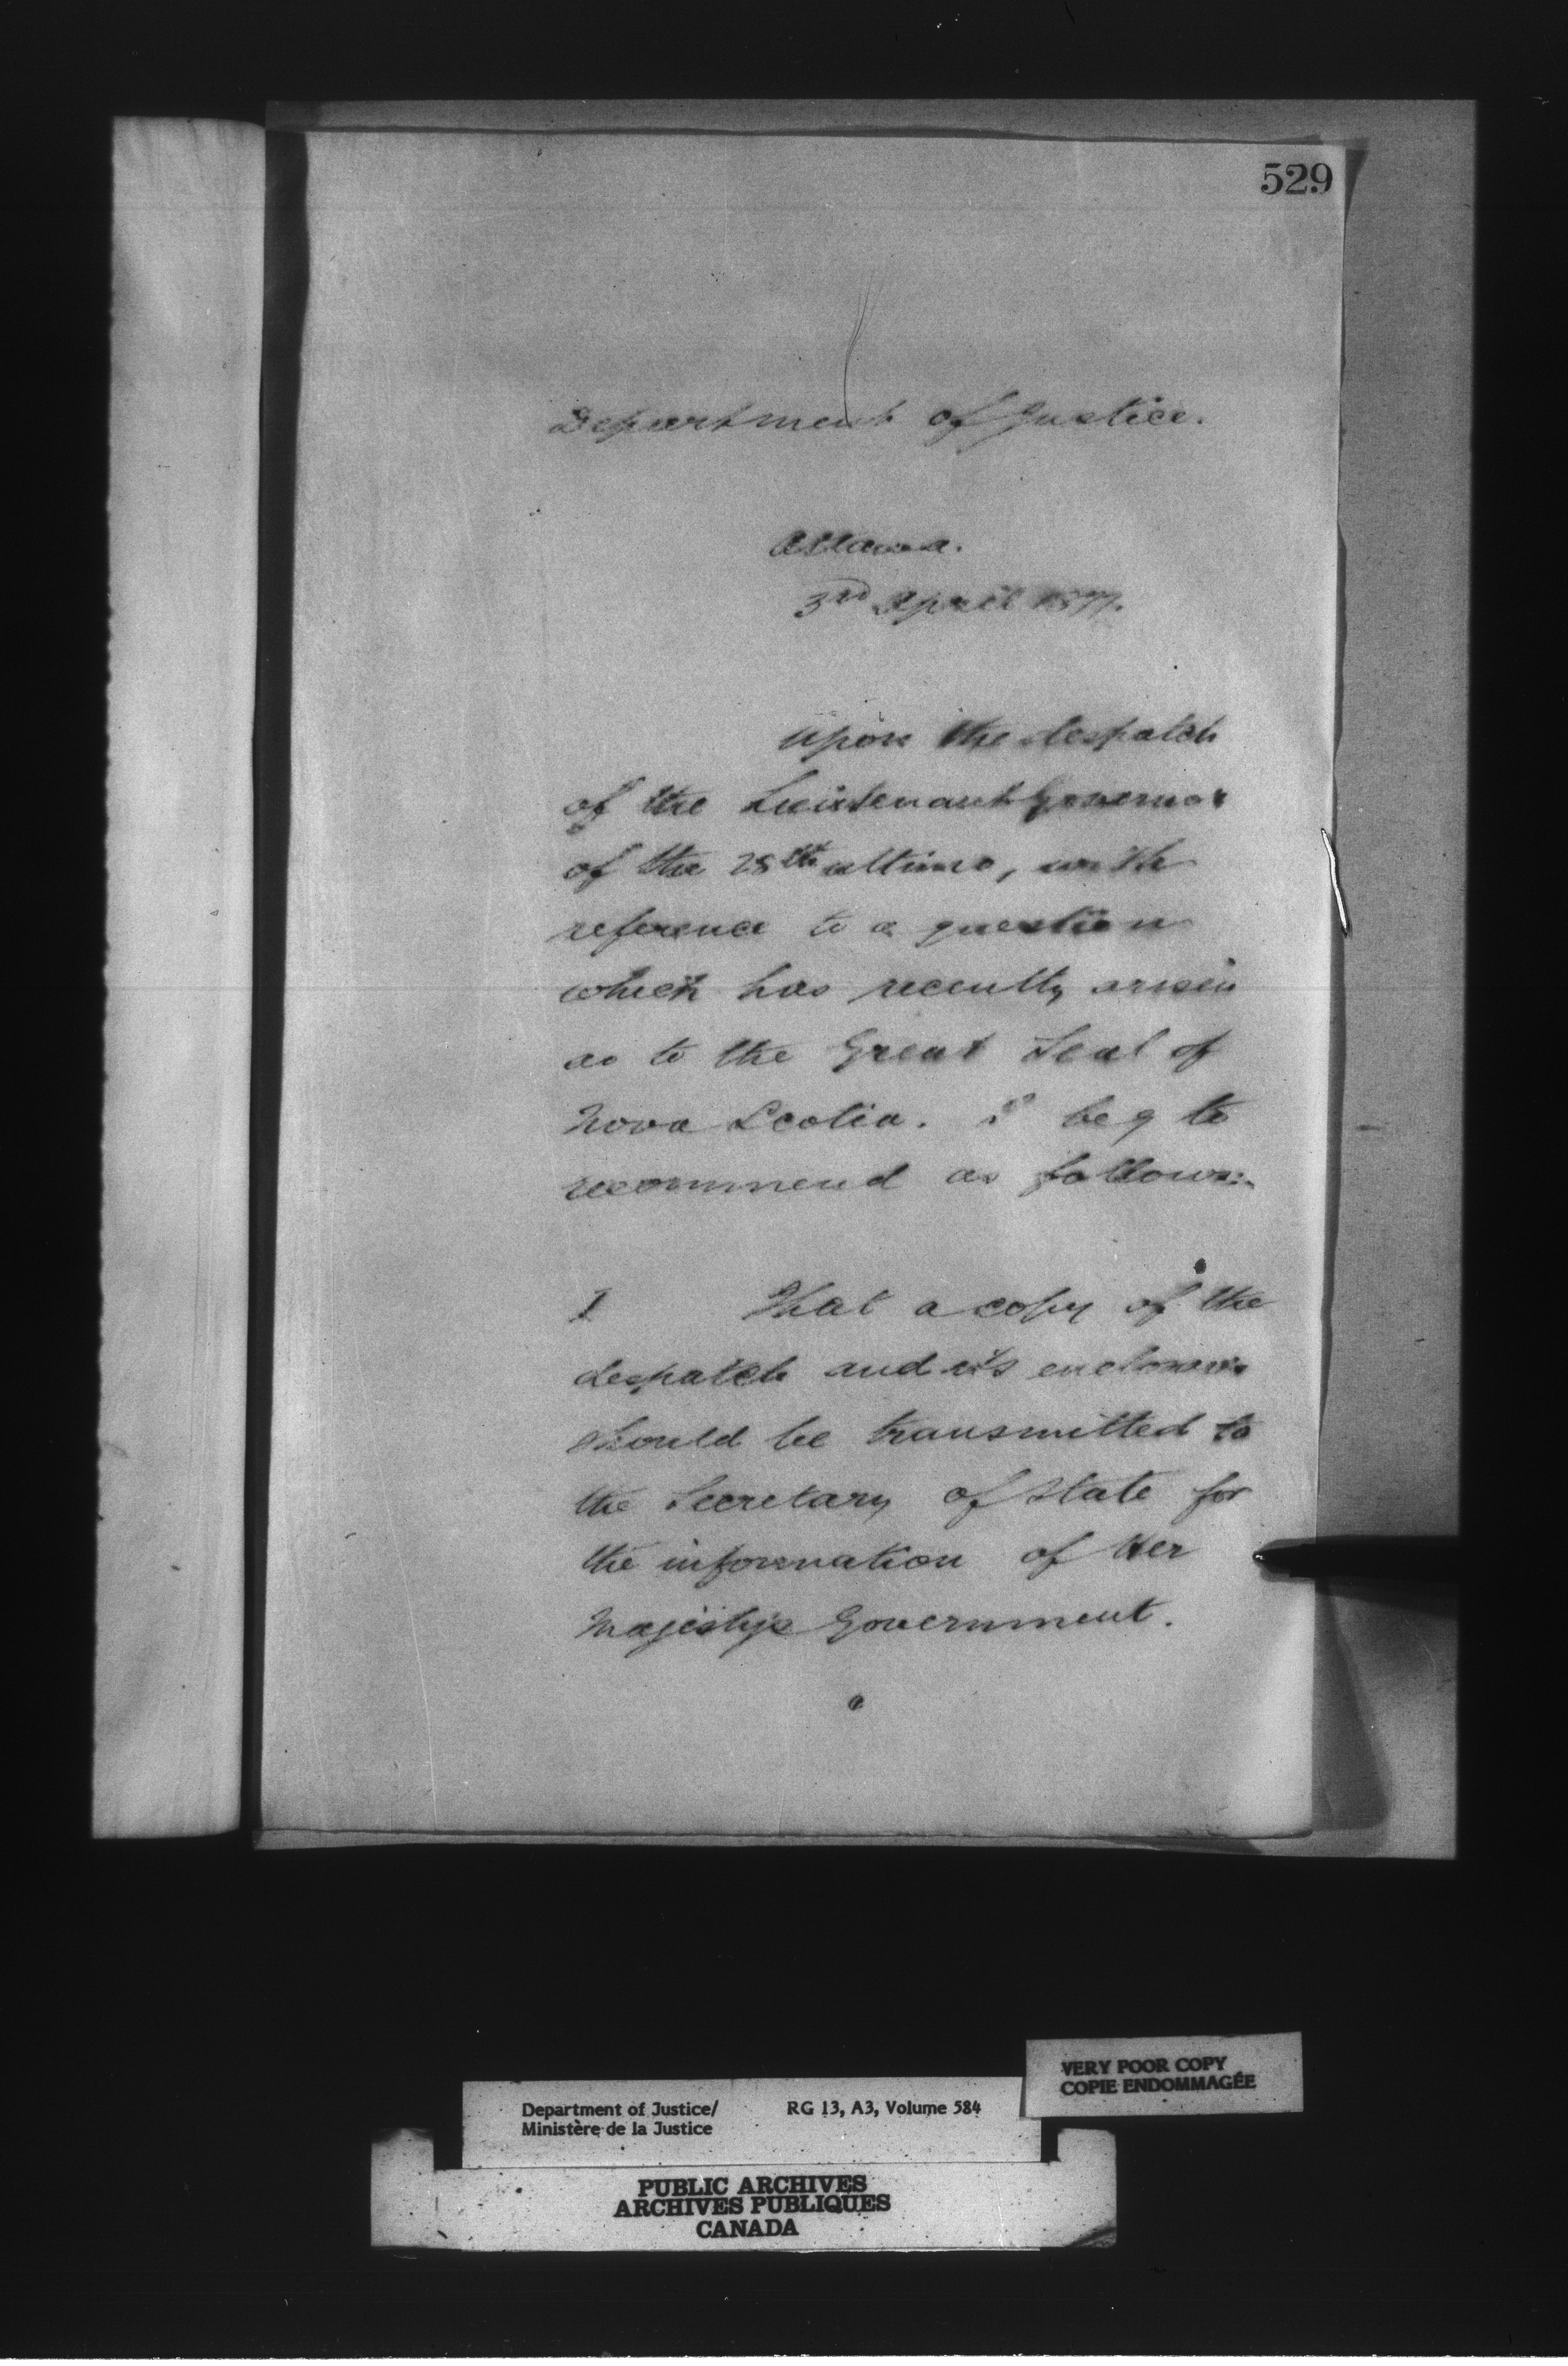 529
Department of Justice.
Ottawa.
3rd April 1877.
Upon the despatch
of the Lieutenant Governor
of the 28th ultimo, with
reference to a question
which has recently arisen
as to the Great Seal of
Nova Scotia. I beg to
recommend as follows:-
1 That a copy of the
despatch and its enclosures
should be transmitted to
the Secretary of State for
the information of Her
Majesty's Government.
VERY POOR COPY
COPIE ENDOMMAGÉE
Department of Justice/ RG 13, A3, Volume 584
Ministère de la Justice
PUBLIC ARCHIVES
ARCHIVES PUBLIQUES
CANADA